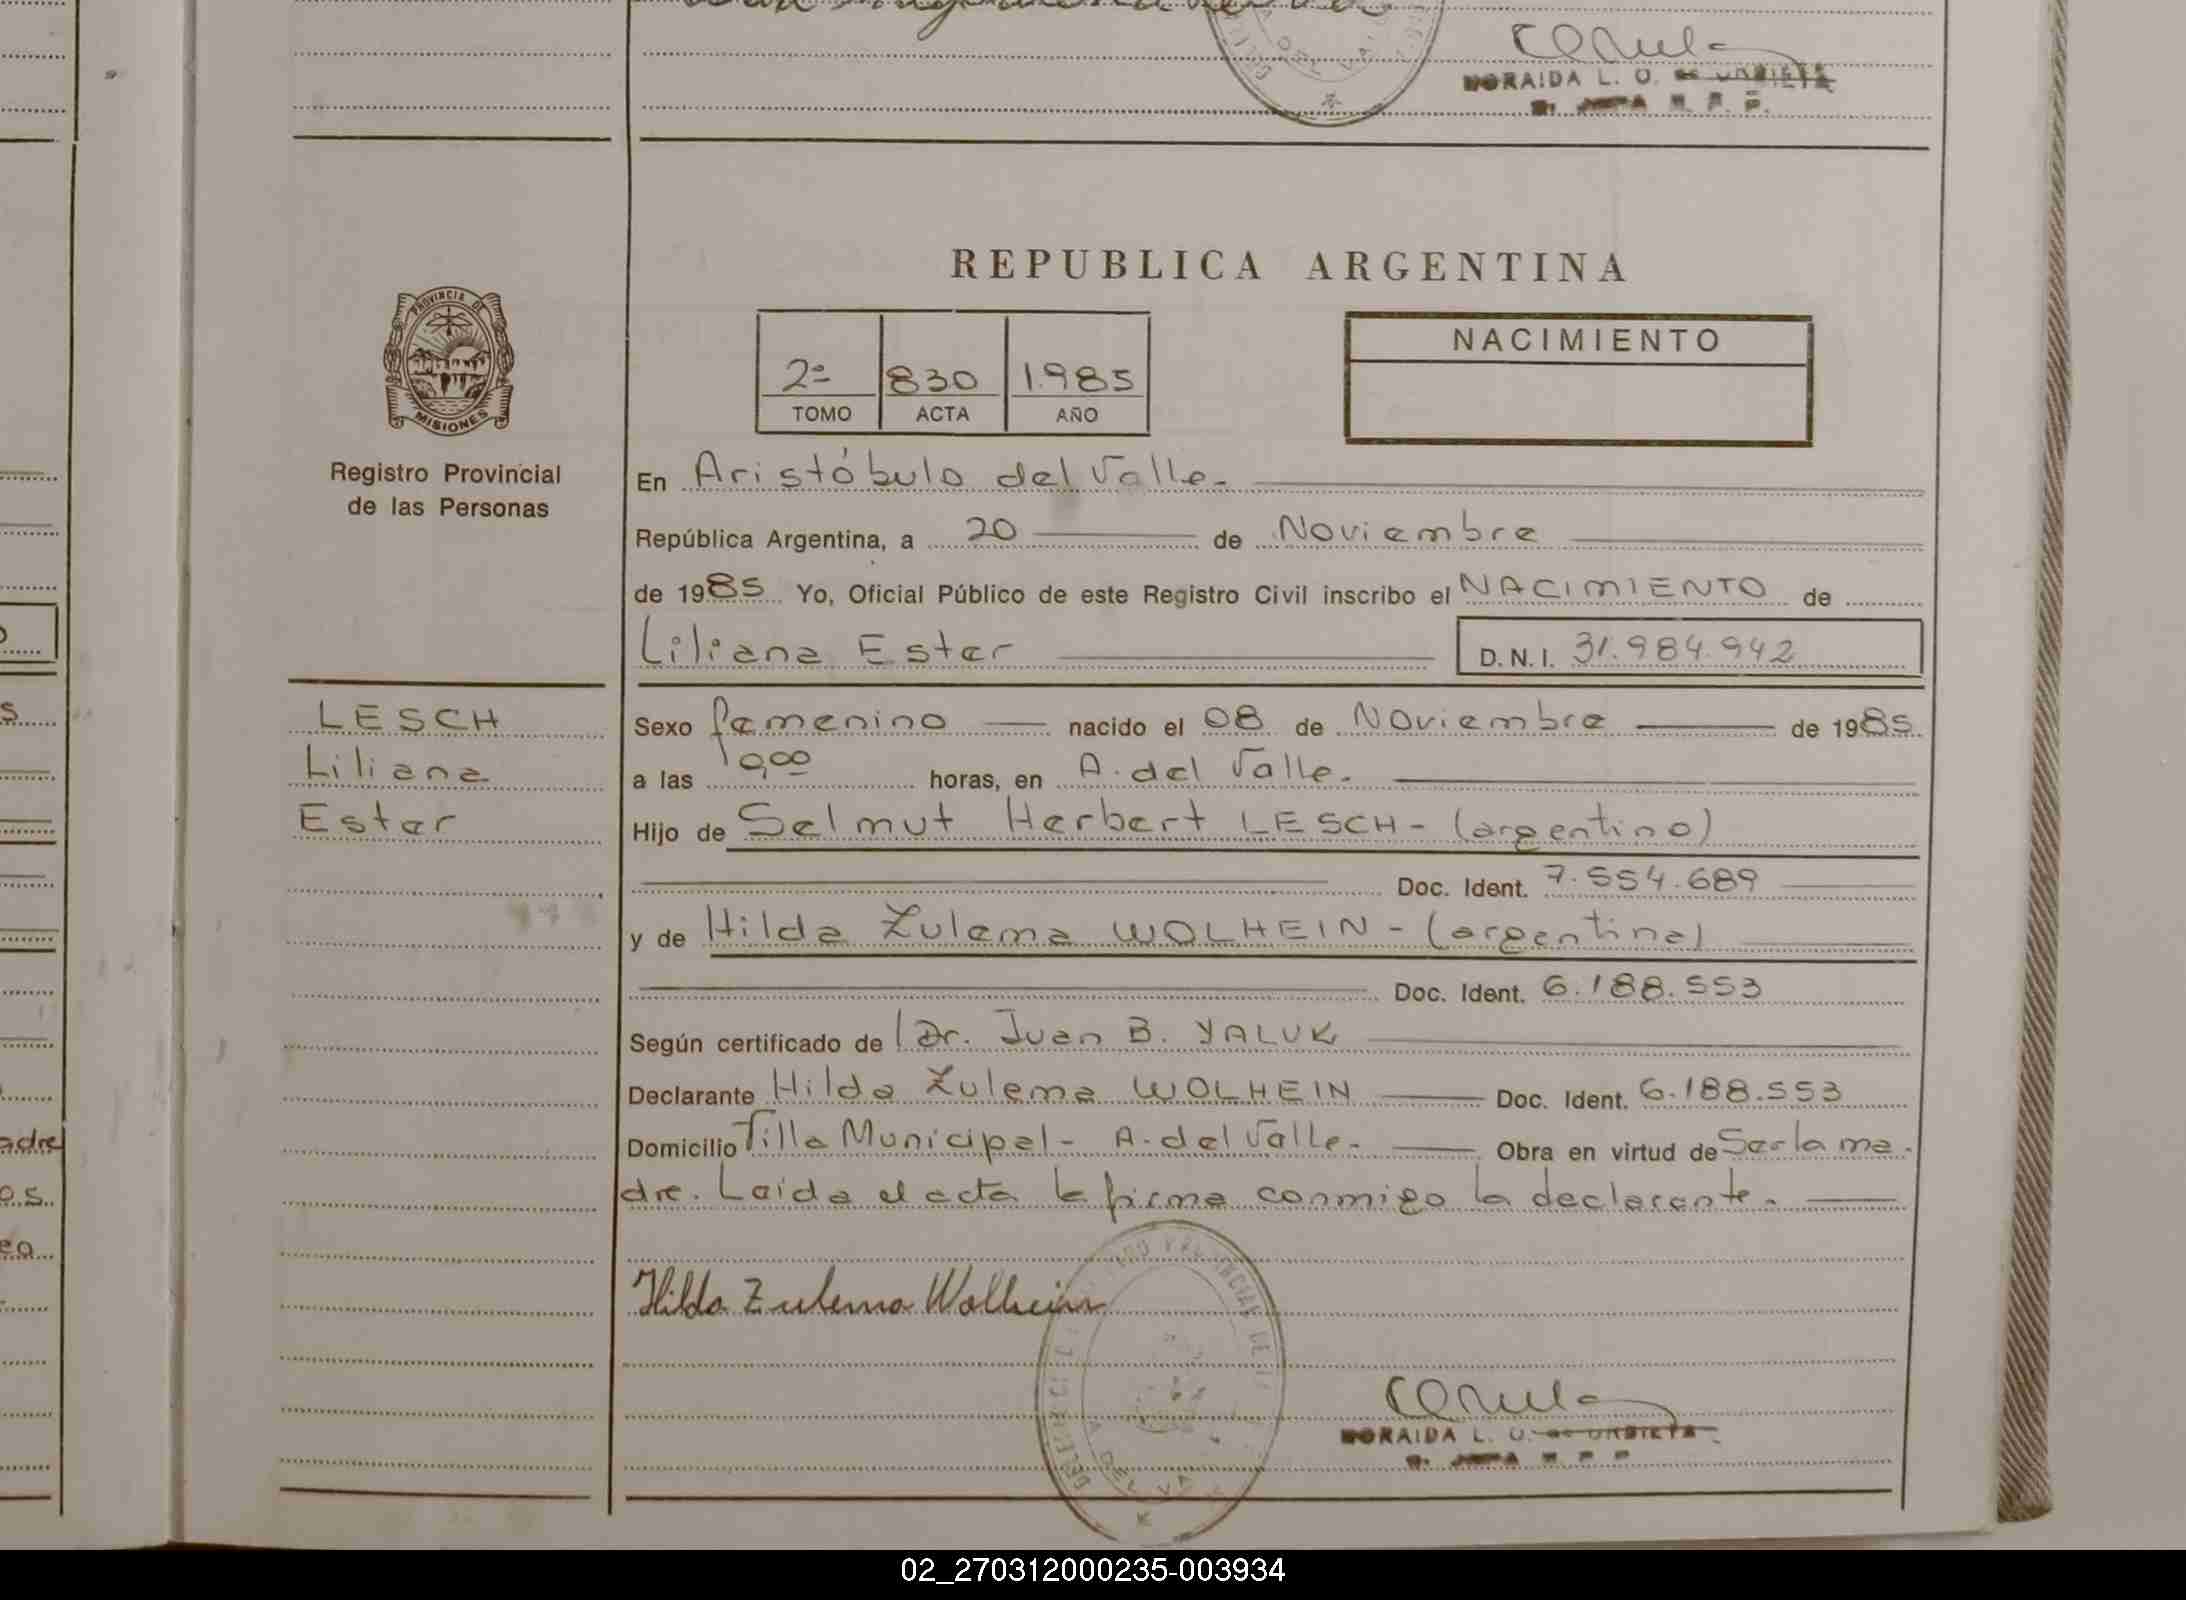 MORAIDA L. O. de URBIETA
REPUBLICA ARGENTINA
PROVINCIA DE
MISIONES
Registro Provincial
de las Personas
2º 830 1.985
TOMO ACTA AÑO
NACIMIENTO
En Aristóbulo del Valle.-
República Argentina, a 20 de Noviembre
de 1985 Yo, Oficial Público de este Registro Civil inscribo el NACIMIENTO de
Liliana Ester D. N. I. 31.984.942
LESCH
Liliana
Ester
Sexo femenino nacido el 08 de Noviembre de 1985
a las 10,00 horas, en A. del Valle.
Hijo de Selmut Herbert LESCH - (argentino)
Doc. Ident. 7.554.689
y de Hilda Zulema WOLHEIN - (argentina)
Doc. Ident. 6.188.553
Según certificado de Dr. Juan B. YALUK
Declarante Hilda Zulema WOLHEIN Doc. Ident. 6.188.553
Domicilio Villa Municipal - A. del Valle. Obra en virtud de Ser la ma
dre. Laida el acta la firma conmigo la declarante.
Hilda Zulema Wolhein
MORAIDA L. O. de URBIETA
02_270312000235-003934